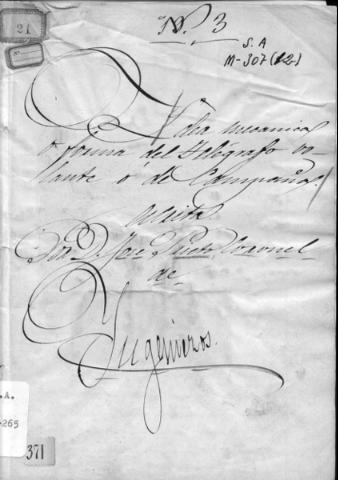 21
Nº. 3
S.A
M-307(12)
Ydea mecanica
ó forma del Telégrafo vo-
lante ó de Campaña.
escrita
Por D. José Prieto Coronel
de
Yngenieros.
.A.
-265
371